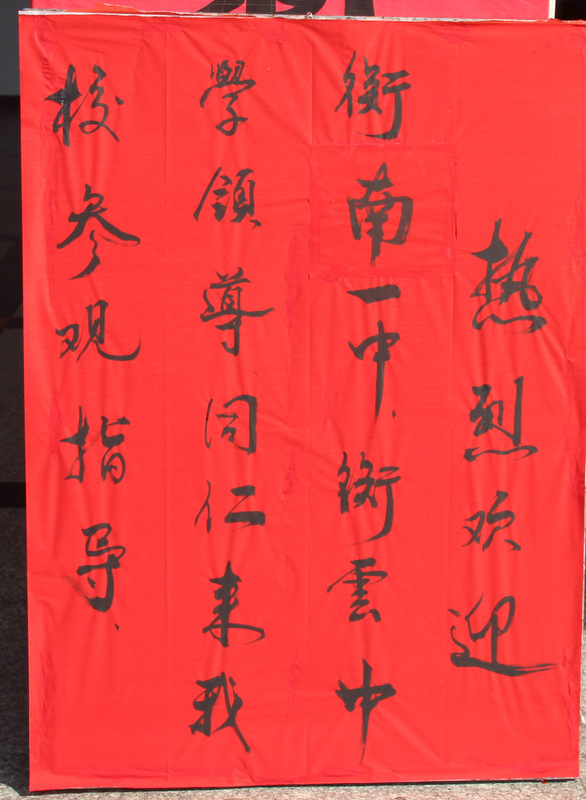 热烈欢迎
衡南一中、衡雲中
學領導同仁来我
校参观指导、